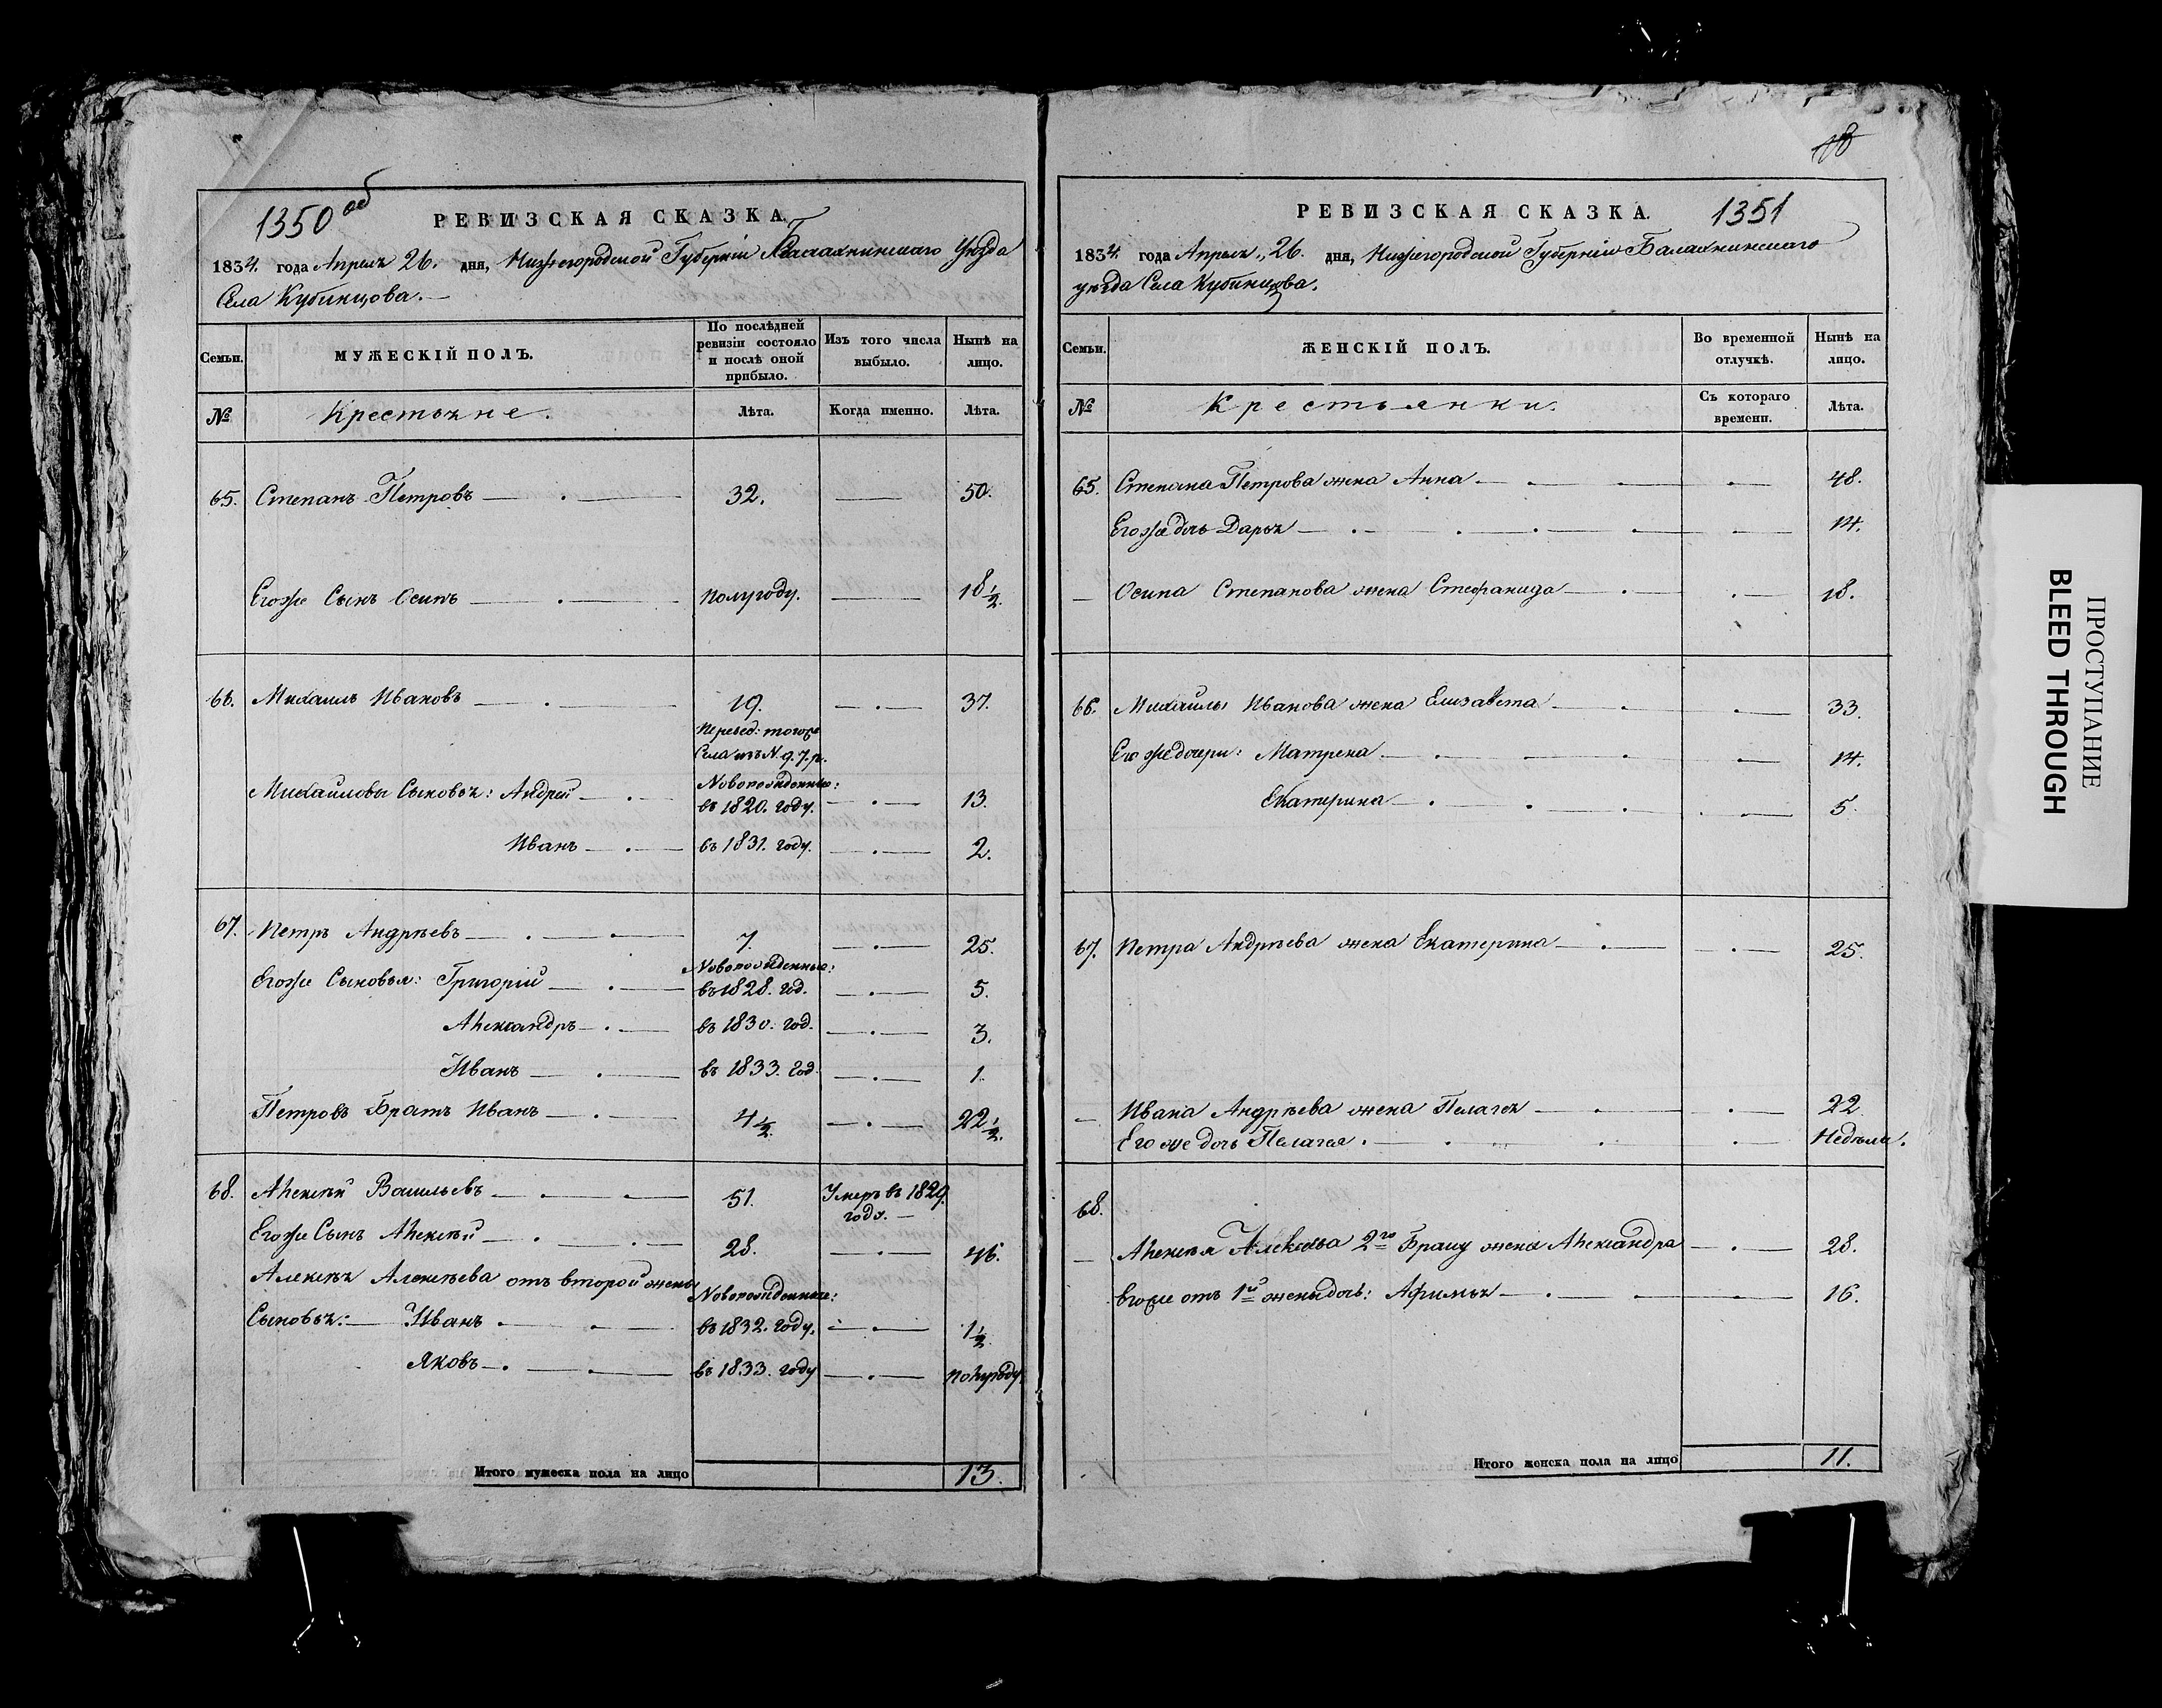 1350 об
РЕВИЗСКАЯ СКАЗКА.
1834. года Апреля 26. дня, Нижегородской Губерніи Балахнинскаго Уезда
Села Кубинцова.
Семьи.
МУЖЕСКІЙ ПОЛЪ.
По послѣдней ревизіи состояло и послѣ оной прибыло.
Изъ того числа выбыло.
Нынѣ на лицо.
№
Крестьяне.
Лѣта.
Когда именно.
Лѣта.
65. Степанъ Петровъ 32. 50.
Егоже Сынъ Осипъ полугоду. 18 1/2.
66. Михаилъ Ивановъ 19. 37.
Перевед: тогоже
Села изъ N. 9. 7. р.
Михайловы Сыновья: Андрей Новорожденные: въ 1820. году. 13.
Иванъ въ 1831. году. 2.
67. Петръ Андрѣевъ 7. 25.
Егоже Сыновья: Григорій Новорожденные: въ 1828. год. 5.
Александръ въ 1830. год. 3.
Иванъ въ 1833. год. 1.
Петровъ Братъ Иванъ 4 1/2. 22 1/2.
68. Алексѣй Васильевъ 51. Умеръ въ 1829. году.
Егоже Сынъ Алексѣй 28. 46.
Алексѣя Алексѣева отъ второй жены
Новорожденные:
Сыновья: Иванъ въ 1832. году. 1 1/2.
Яковъ въ 1833. году полугоду.
Итого мужеска пола на лицо 13.
18
РЕВИЗСКАЯ СКАЗКА. 1351
1834. года Апреля, 26. дня, Нижегородской Губерніи Балахнинскаго
уезда Села Кубинцова.
Семьи.
ЖЕНСКІЙ ПОЛЪ.
Во временной отлучкѣ.
Нынѣ на лицо.
№
Крестьянки.
Съ котораго времени.
Лѣта.
65. Степана Петрова жена Анна 48.
Егоже дочь Дарья 14.
Осипа Степанова жена Стефанида 18.
66. Михайлы Иванова жена Елизавета 33.
Его же дочери: Матрена 14.
Екатерина 5.
67. Петра Андрѣева жена Екатерина 25.
Ивана Андрѣева жена Пелагея 22.
Его же дочь Пелагея. Недѣли.
68.
Алексѣя Алексѣева 2го Браку жена Александра 28.
Егоже отъ 1й жены дочь: Афимья 16.
Итого женска пола на лицо 11.
ПРОСТУПАНИЕ
BLEED THROUGH